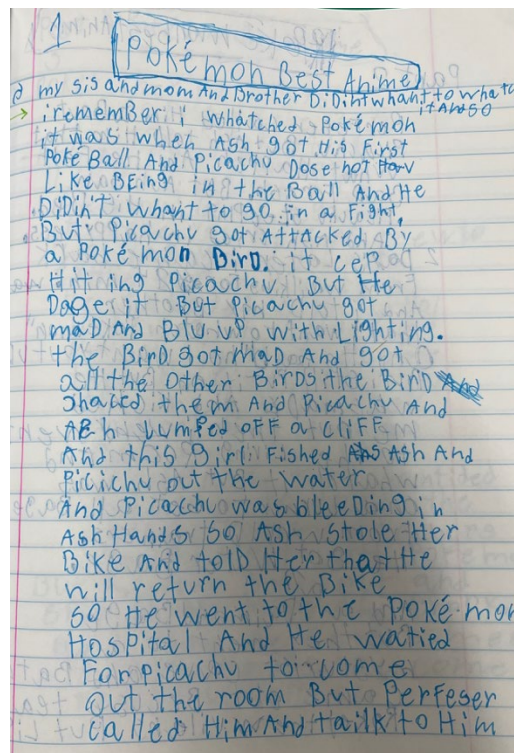 1 Poké mon Best Anime
my sis and mom And Brother DiDint whant to whatch
it And so
i remember i whatched Poké mon
it was when Ash got His First
Poké Ball And Picachu Dose not
Like BEing in the Ball And He
DiDin't whant to go in a Fight,
But Picachu got AttAcked By
a Poké mon BirD. it cep
Hit ing Picachu. But He
Dager it But Picachu got
maD And Blu up with Lighting.
the BirD got maD And got
all the other BirDs the BirD
chaced them And Picachu And
Ash Jumped oFF a cliFF
And this girl Fished Ash And
Picichu out the water
And Picachu was bleeDing in
Ash HanDs so Ash stole Her
Bike And tolD Her that He
will return the Bike
so He went to the Poké mon
HosPital And He watied
For picachu to come
out the room But PerFeser
called Him And tailk to Him